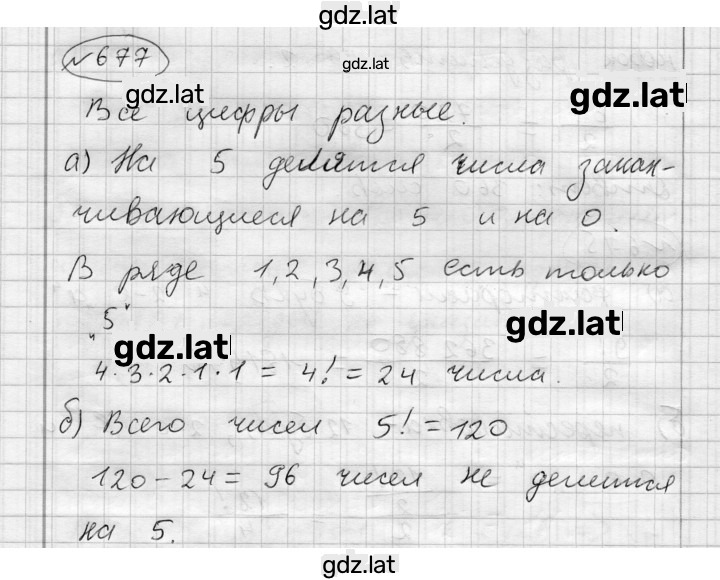 gdz.lat
№677
gdz.lat
gdz.lat
gdz.lat
Все цифры разные.
а) На 5 делятся числа закан-
чивающиеся на 5 и на 0.
В ряде 1,2,3,4,5 есть только
"5"
gdz.lat
gdz.lat
4·3·2·1·1 = 4! = 24 числа.
б) Всего чисел 5! = 120
120-24 = 96 чисел не делится
на 5.
gdz.lat